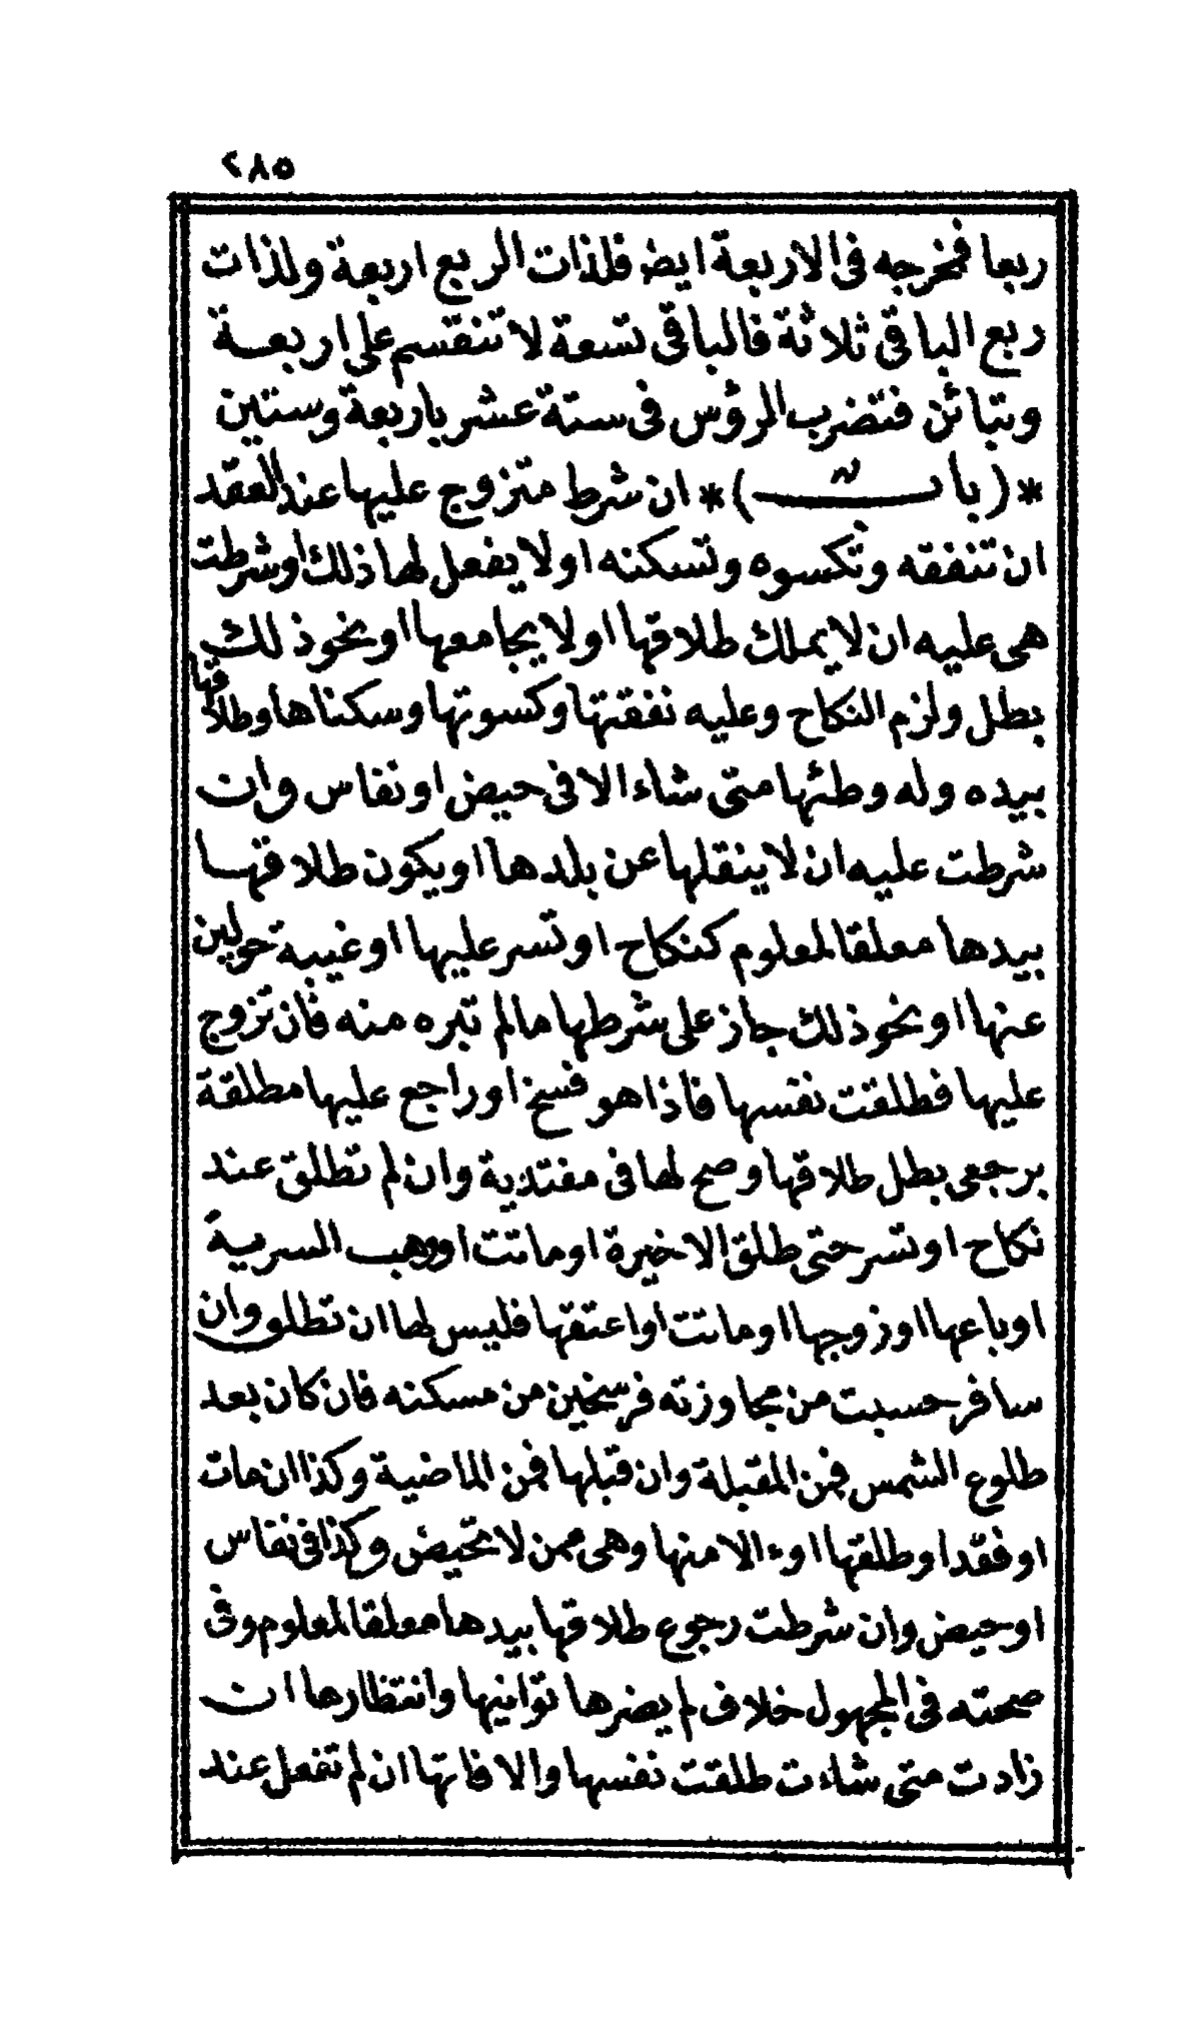 ٢٨٥
ربعا فمخرجه فى الاربعة ايض فلذات الربع اربعة ولذات
ربع الباقى ثلاثة فالباقى تسعة لا تنقسم على اربعة
وتبائن فتضرب الرؤس فى ستة عشر باربعة وستين
*(باب)* ان شرط متزوج عليها عند العقد
ان تنفقه وتكسوه وتسكنه اولا يفعل لها ذلك او شرطت
هى عليه ان لا يملك طلاقها اولا يجامعها او نحو ذلك
بطل ولزم النكاح وعليه نفقتها وكسوتها وسكناها وطلاقها
بيده وله وطئها متى شاء الا فى حيض او نفاس وان
شرطت عليه ان لا ينقلها عن بلدها او يكون طلاقها
بيدها معلقا لمعلوم كنكاح او تسر عليها او غيبة حولين
عنها او نحو ذلك جاز على شرطها مالم تبره منه فان تزوج
عليها فطلقت نفسها فاذا هو فسخ او راجع عليها مطلقة
برجعى بطل طلاقها وصح لها فى مفتدية وان لم تطلق عند
نكاح او تسر حتى طلق الاخيرة او ماتت او وهب السرية
او باعها او زوجها او ماتت او اعتقها فليس لها ان تطلو وان
سافر حسبت من مجاوزته فرسخين من مسكنه فان كان بعد
طلوع الشمس فمن المقبلة وان قبلها فمن الماضية وكذا ان مات
او فقد او طلقها اوء الا منها وهى ممن لا تحيض وكذا فى نفاس
او حيض وان شرطت رجوع طلاقها بيدها معلقا لمعلوم وفى
صحته فى المجهول خلاف لم يضرها توانيها وانتظارها ان
زادت متى شاءت طلقت نفسها والا فاتها ان لم تفعل عند